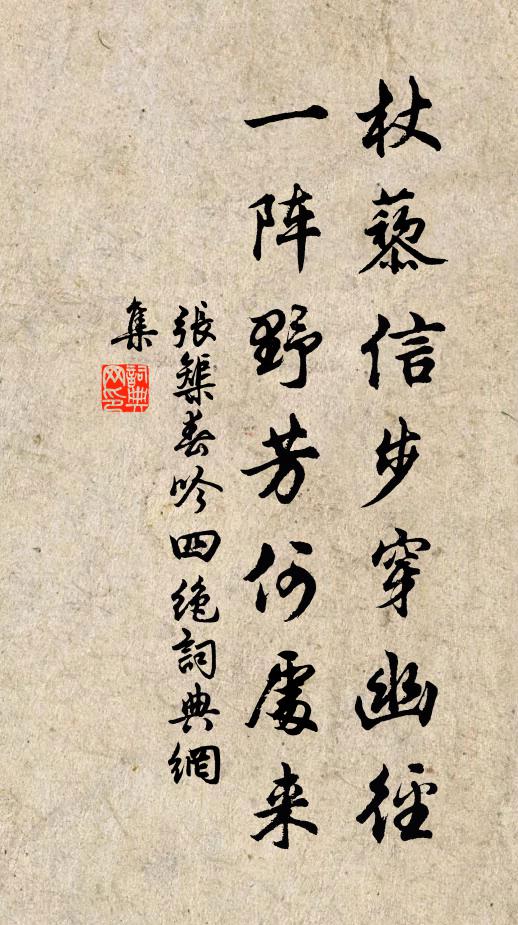 杖藜信步穿幽径
一阵野芳何處来
張榘春吟四绝詞典網
集
詞典網印